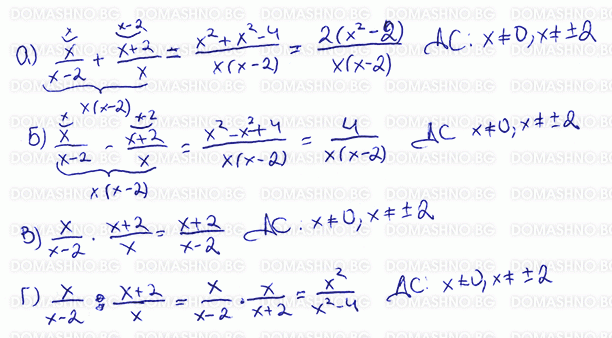 а) x/(x-2) + (x+2)/x = (x²+x²-4)/(x(x-2)) = 2(x²-2)/(x(x-2)) ДС: x≠0, x≠±2
x(x-2)
Б) x/(x-2) - (x+2)/x = (x²-x²+4)/(x(x-2)) = 4/(x(x-2)) ДС x≠0; x≠±2
x(x-2)
В) x/(x-2) . (x+2)/x = (x+2)/(x-2) ДС: x≠0, x≠±2
Г) x/(x-2) : (x+2)/x = x/(x-2) . x/(x+2) = x²/(x²-4) ДС: x≠0, x≠±2